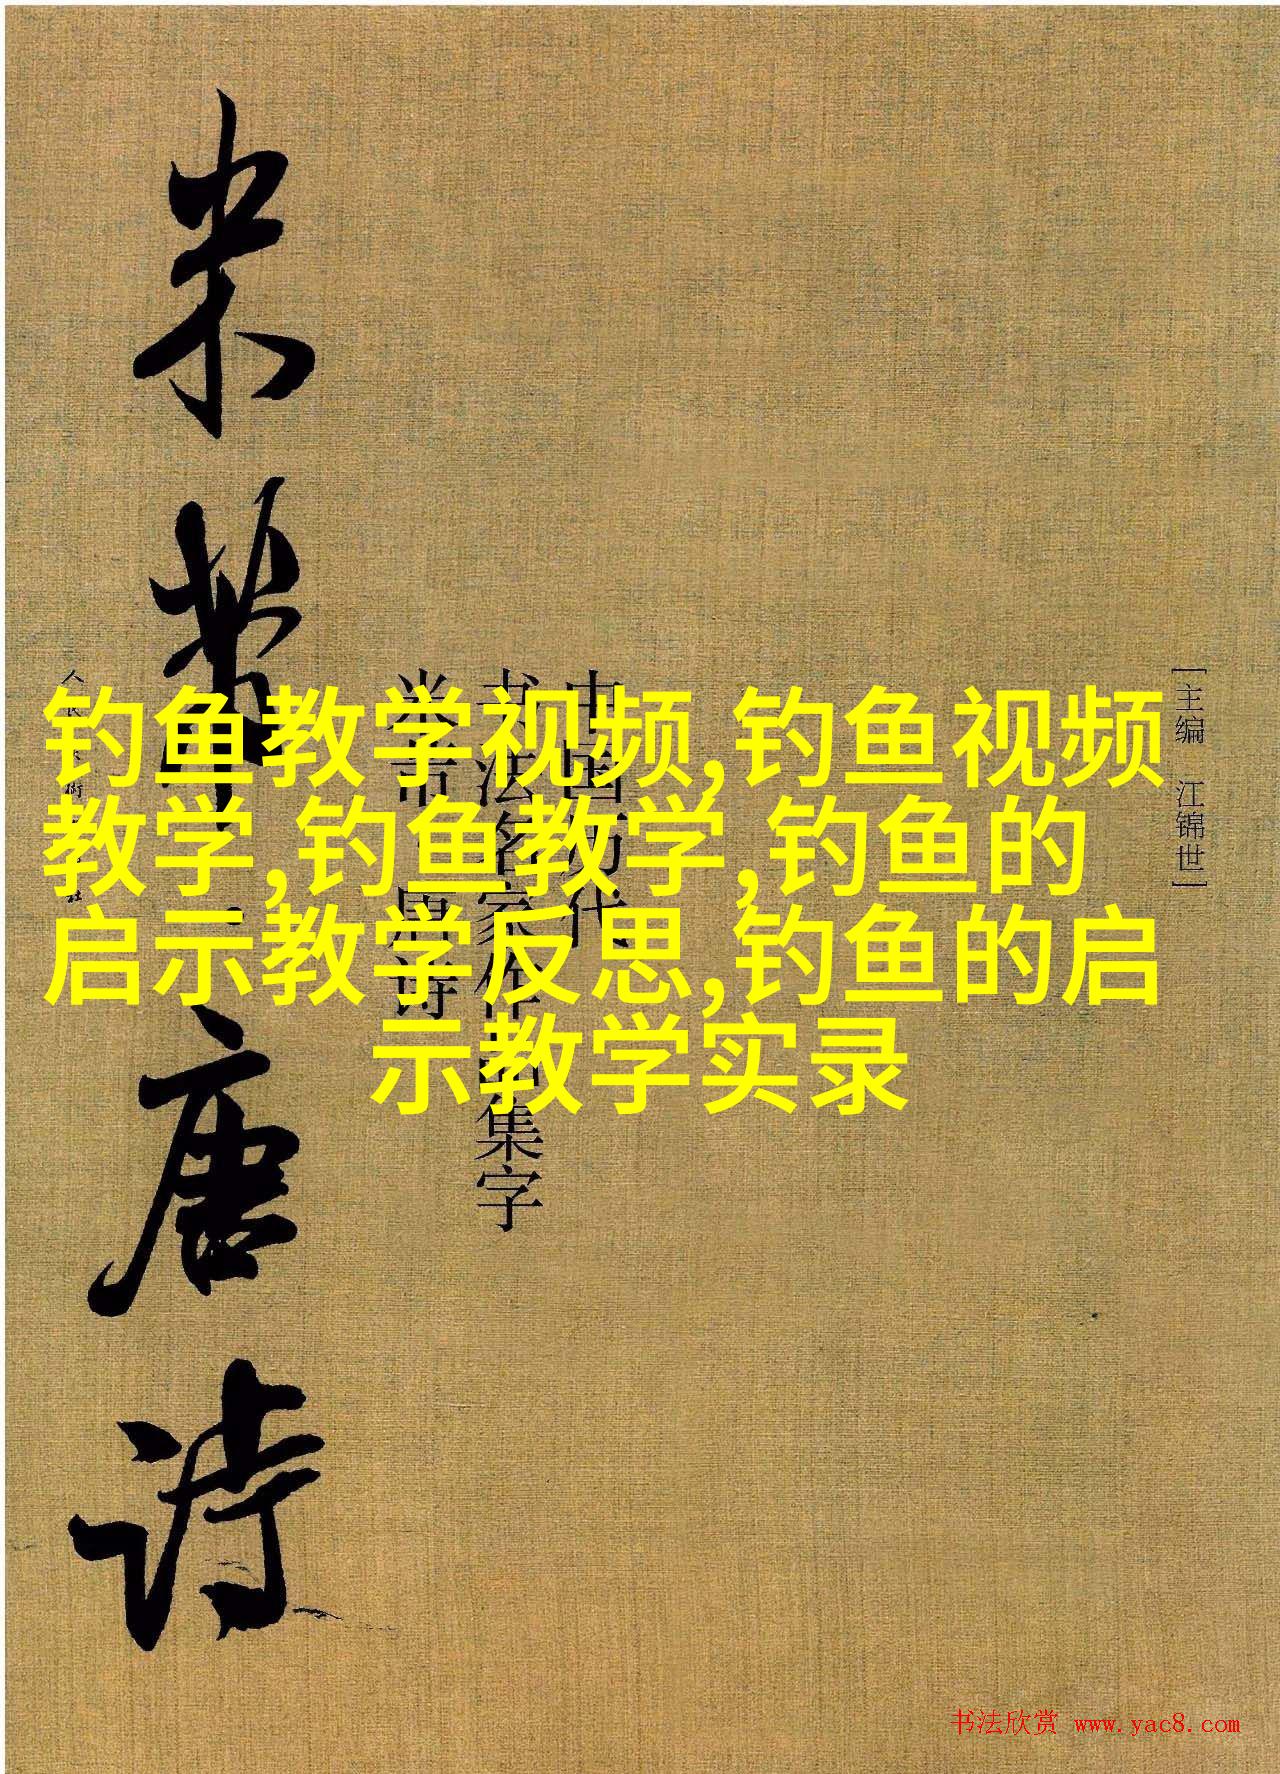 米芾·唐诗
中国历代
书法名家作品集字
米芾·唐诗
[主编 江锦世]
钓鱼教学视频,钓鱼视频
教学,钓鱼教学,钓鱼的
启示教学反思,钓鱼的启
示教学实录
书法欣赏 www.yac8.com